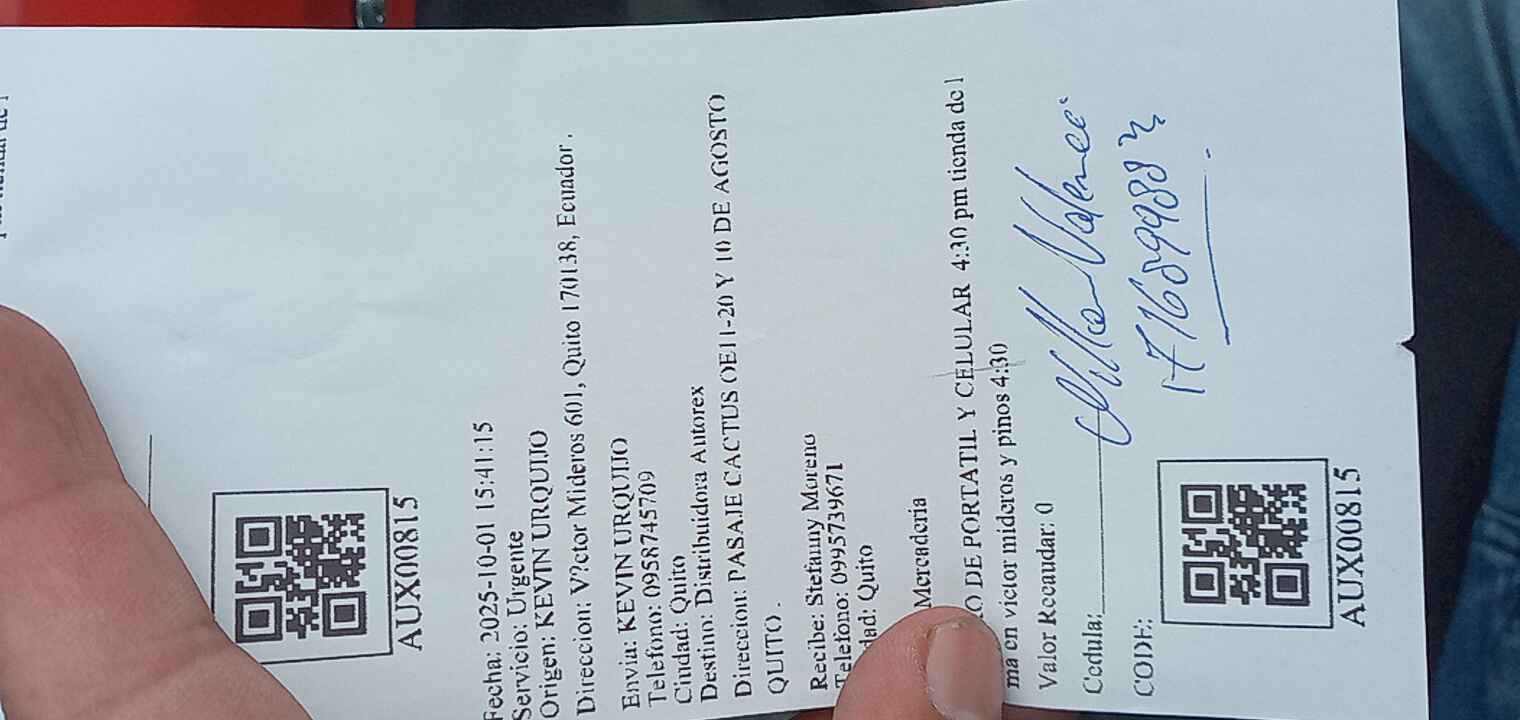 AUX00815
Fecha: 2025-10-01 15:41:15
Servicio: Urgente
Origen: KEVIN URQUIJO
Direccion: V?ctor Mideros 601, Quito 170138, Ecuador .
Envia: KEVIN URQUIJO
Telefono: 0958745709
Ciudad: Quito
Destino: Distribuidora Autorex
Direccion: PASAJE CACTUS OE11-20 Y 10 DE AGOSTO
QUITO .
Recibe: Stefanny Moreno
Telefono: 0995739671
dad: Quito
Mercaderia
O DE PORTATIL Y CELULAR 4:30 pm tienda de l
ma en victor mideros y pinos 4:30
Valor Recaudar: 0
Cedula:
CODE:
AUX00815